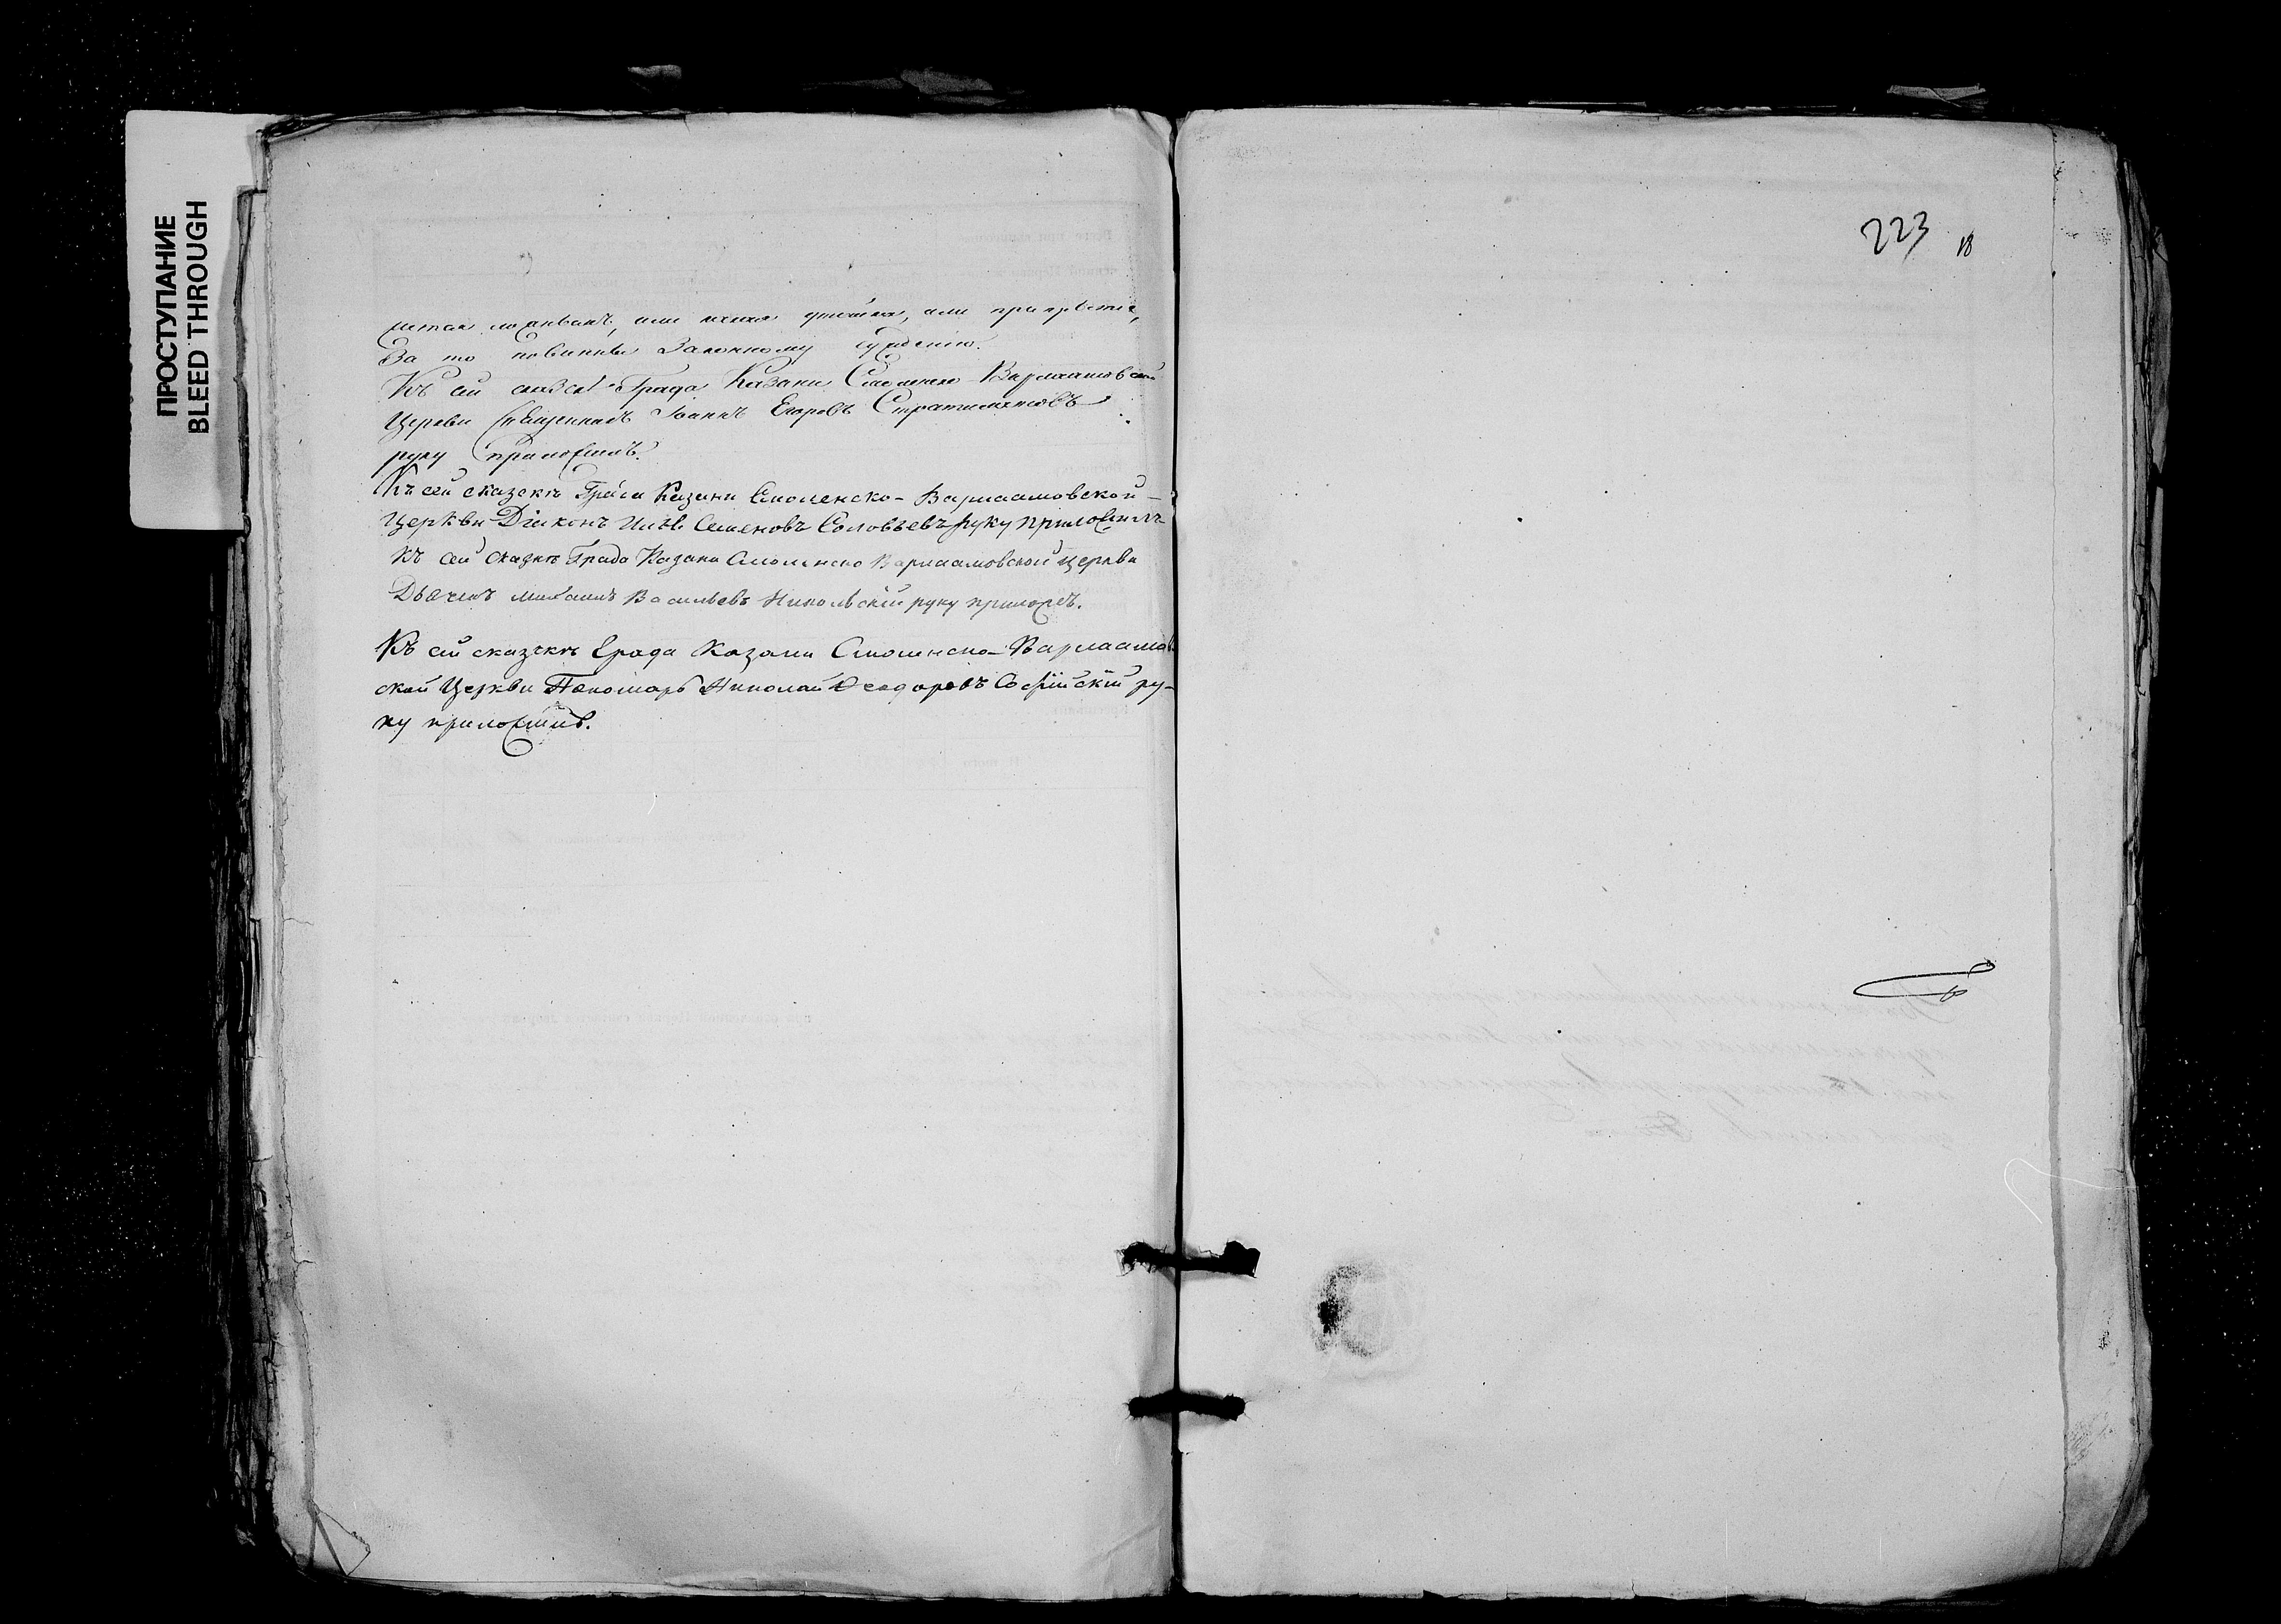 ПРОСТУПАНИЕ
BLEED THROUGH
223 18
или при
За то повинны Законному суждению.
Къ сей Града Казани Смоленско-Варлаамовской
Церкви Священникъ Іоаннъ Егоровъ
руку приложилъ.
Къ сей сказскѣ Града Казани Смоленско-Варлаамовской
Церкви Діиконъ Семеновъ Соловьевъ руку приложилъ
Къ сей сказкѣ Града Казани Смоленско Варлаамовской церкви
Дьячекъ Михаилъ Васильевъ Никольскій руку приложилъ.
Къ сей сказкѣ Града Казани Смоленско-Варлаамов-
ской Церкви Пономарь Николай Ѳеодоровъ Софійскій ру-
ку приложилъ.